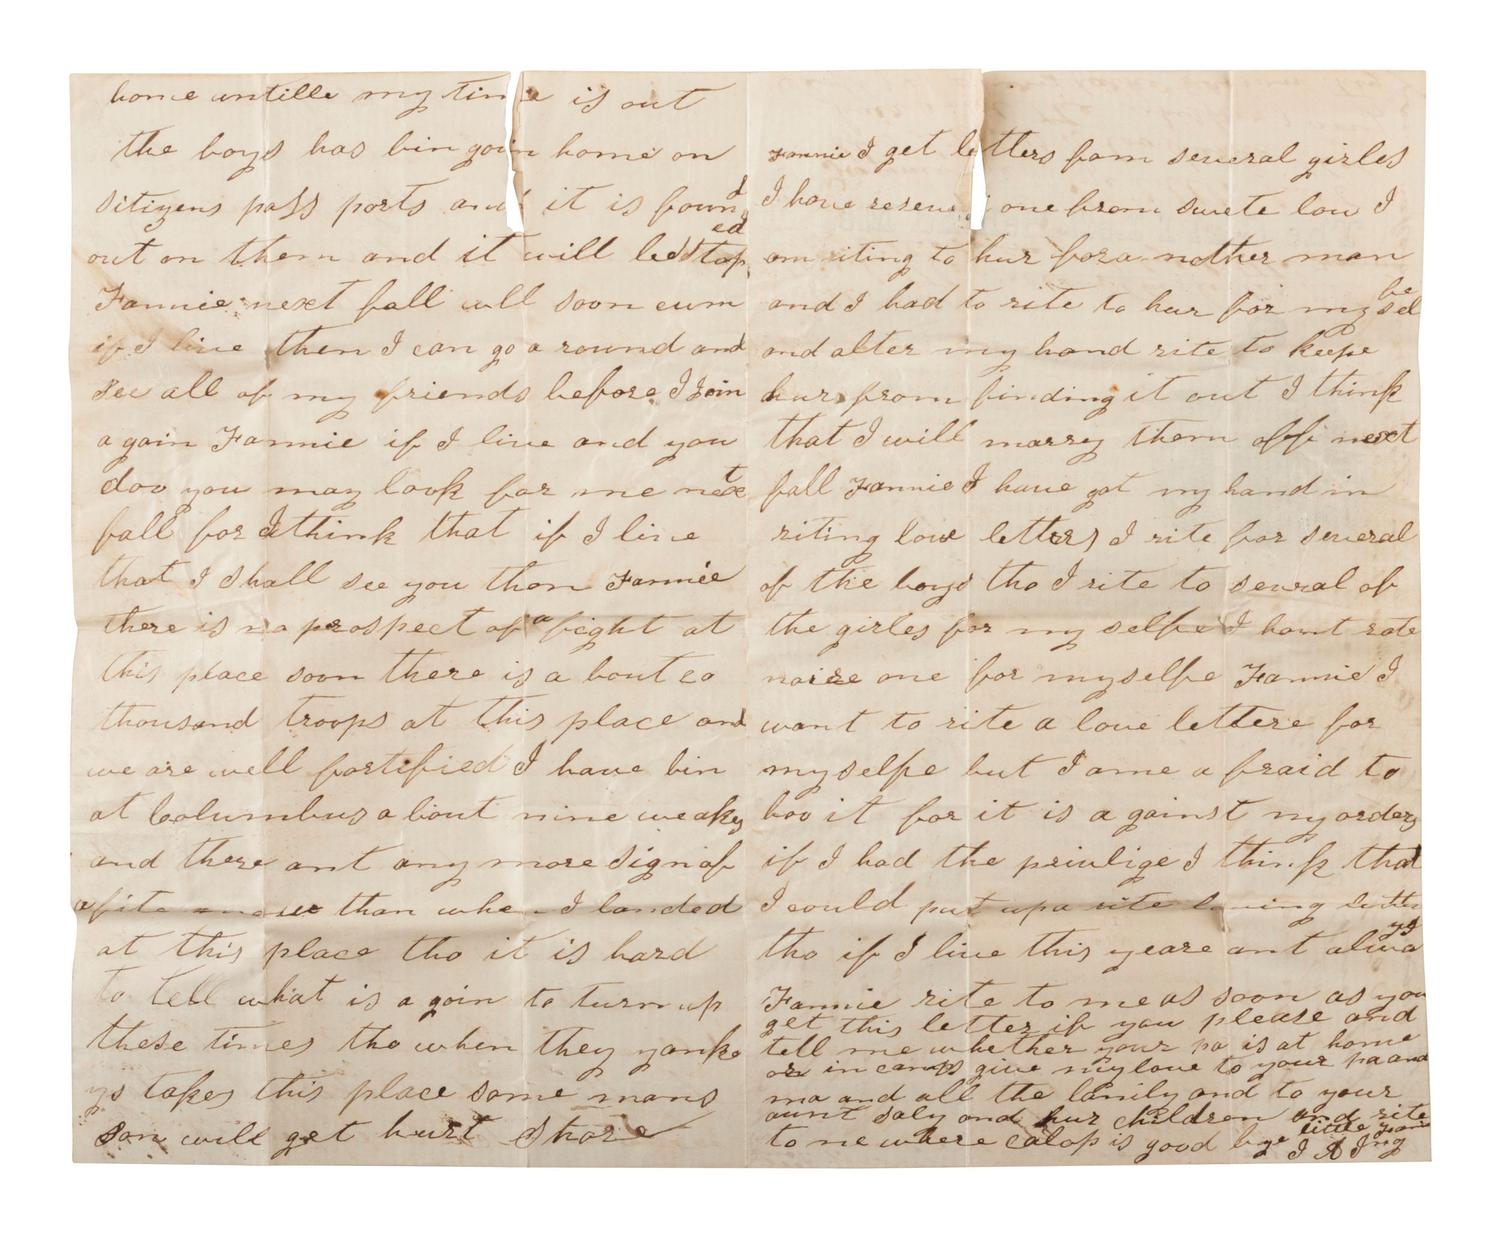 home untille my time is out
the boys has bin goin home on
sitizens pass ports and it is found
out on them and it will be stoped
Fannie next fall will soon cum
if I live then I can go a round and
see all of my friends before I join
a gain Fannie if I live and you
doo you may look for me next
fall for I think that if I live
that I shall see you then Fannie
there is no prospect of a fight at
this place soon there is a bout
thousand troops at this place and
we are well fortified I have bin
at Columbus a bout nine weaks
and there ant any more sign of
a fite than when I landed
at this place tho it is hard
to tell what is a goin to turn up
these times tho when they yanke
ys takes this place some mans
son will get hurt shore
Fannie I get letters fom several girles
I have reseved one from swete lou I
am riting to hur for a nother man
and I had to rite to hur for my sel
be
and alter my hand rite to keepe
hur from finding it out I think
that I will marry them off next
fall Fannie I have got my hand in
riting love letters I rite for several
of the boys tho I rite to sevral of
the girles for my selfe I hant rote
one for my selfe Fannie I
want to rite a love lettere for
my selfe but I ame a fraid to
it for it is a gainst my orders
if I had the privlige I think that
I could put up a rite
tho if I live this yeare ant alwa
ys
Fannie rite to me as soon as you
get this letter if you please and
tell me whether your pa is at home
or in camps give my love to your pa and
ma and all the family and to your
aunt saly and hur children and rite
to me where is good bye little